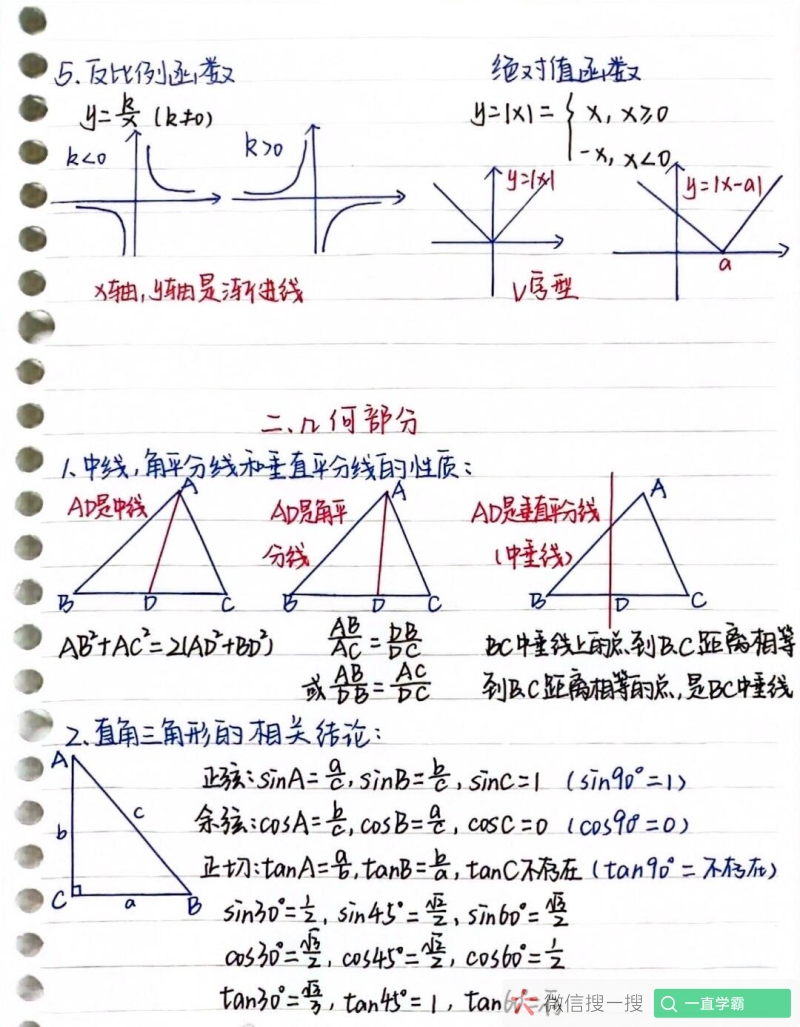 5.反比例函数
绝对值函数
y=k/x (k≠0)
y=|x|={x, x≥0
-x, x<0
k<0
k>0
y=|x|
y=|x-a|
a
x轴,y轴是渐近线
V字型
二、几何部分
1.中线,角平分线和垂直平分线的性质:
AD是中线
A
B
D
C
AD是角平
分线
A
B
D
C
AD是垂直平分线
(中垂线)
A
B
D
C
AB²+AC²=2(AD²+BD²)
AB/AC=DB/DC
或AB/DB=AC/DC
BC中垂线上的点到B.C距离相等
到B.C距离相等的点,是BC中垂线
2.直角三角形的相关结论:
A
b
c
C
a
B
正弦:sinA=a/c,sinB=b/c,sinC=1 (sin90°=1)
余弦:cosA=b/c,cosB=a/c,cosC=0 (cos90°=0)
正切:tanA=a/b,tanB=b/a,tanC不存在(tan90°=不存在)
sin30°=1/2, sin45°=√2/2, sin60°=√3/2
cos30°=√3/2, cos45°=√2/2, cos60°=1/2
tan30°=√3/3, tan45°=1, tan
微信搜一搜
一直学霸